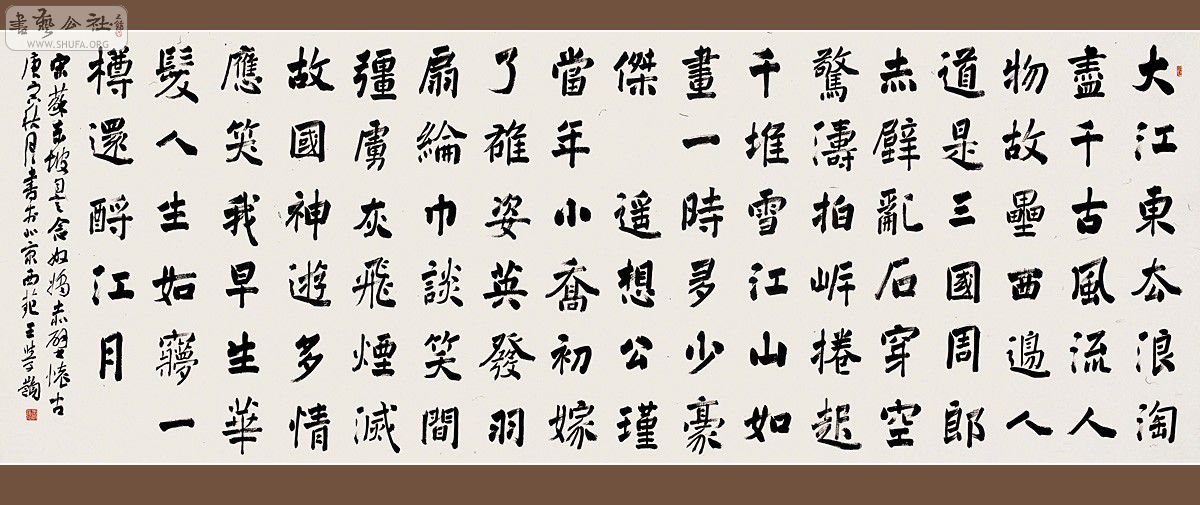 大江東去浪淘
盡千古風流人
物故壘西邊人
道是三國周郎
赤壁亂石穿空
驚濤拍岸捲起
千堆雪江山如
畫一時多少豪
傑 遥想公瑾
當年小喬初嫁
了雄姿英發羽
扇綸巾談笑間
彊虜灰飛煙滅
故國神遊多情
應笑我早生華
髮人生如夢一
樽還酹江月
宋蘇東坡念奴嬌赤壁懷古
庚寅秋月書於北京西苑王學
書藝公社
WWW.SHUFA.ORG